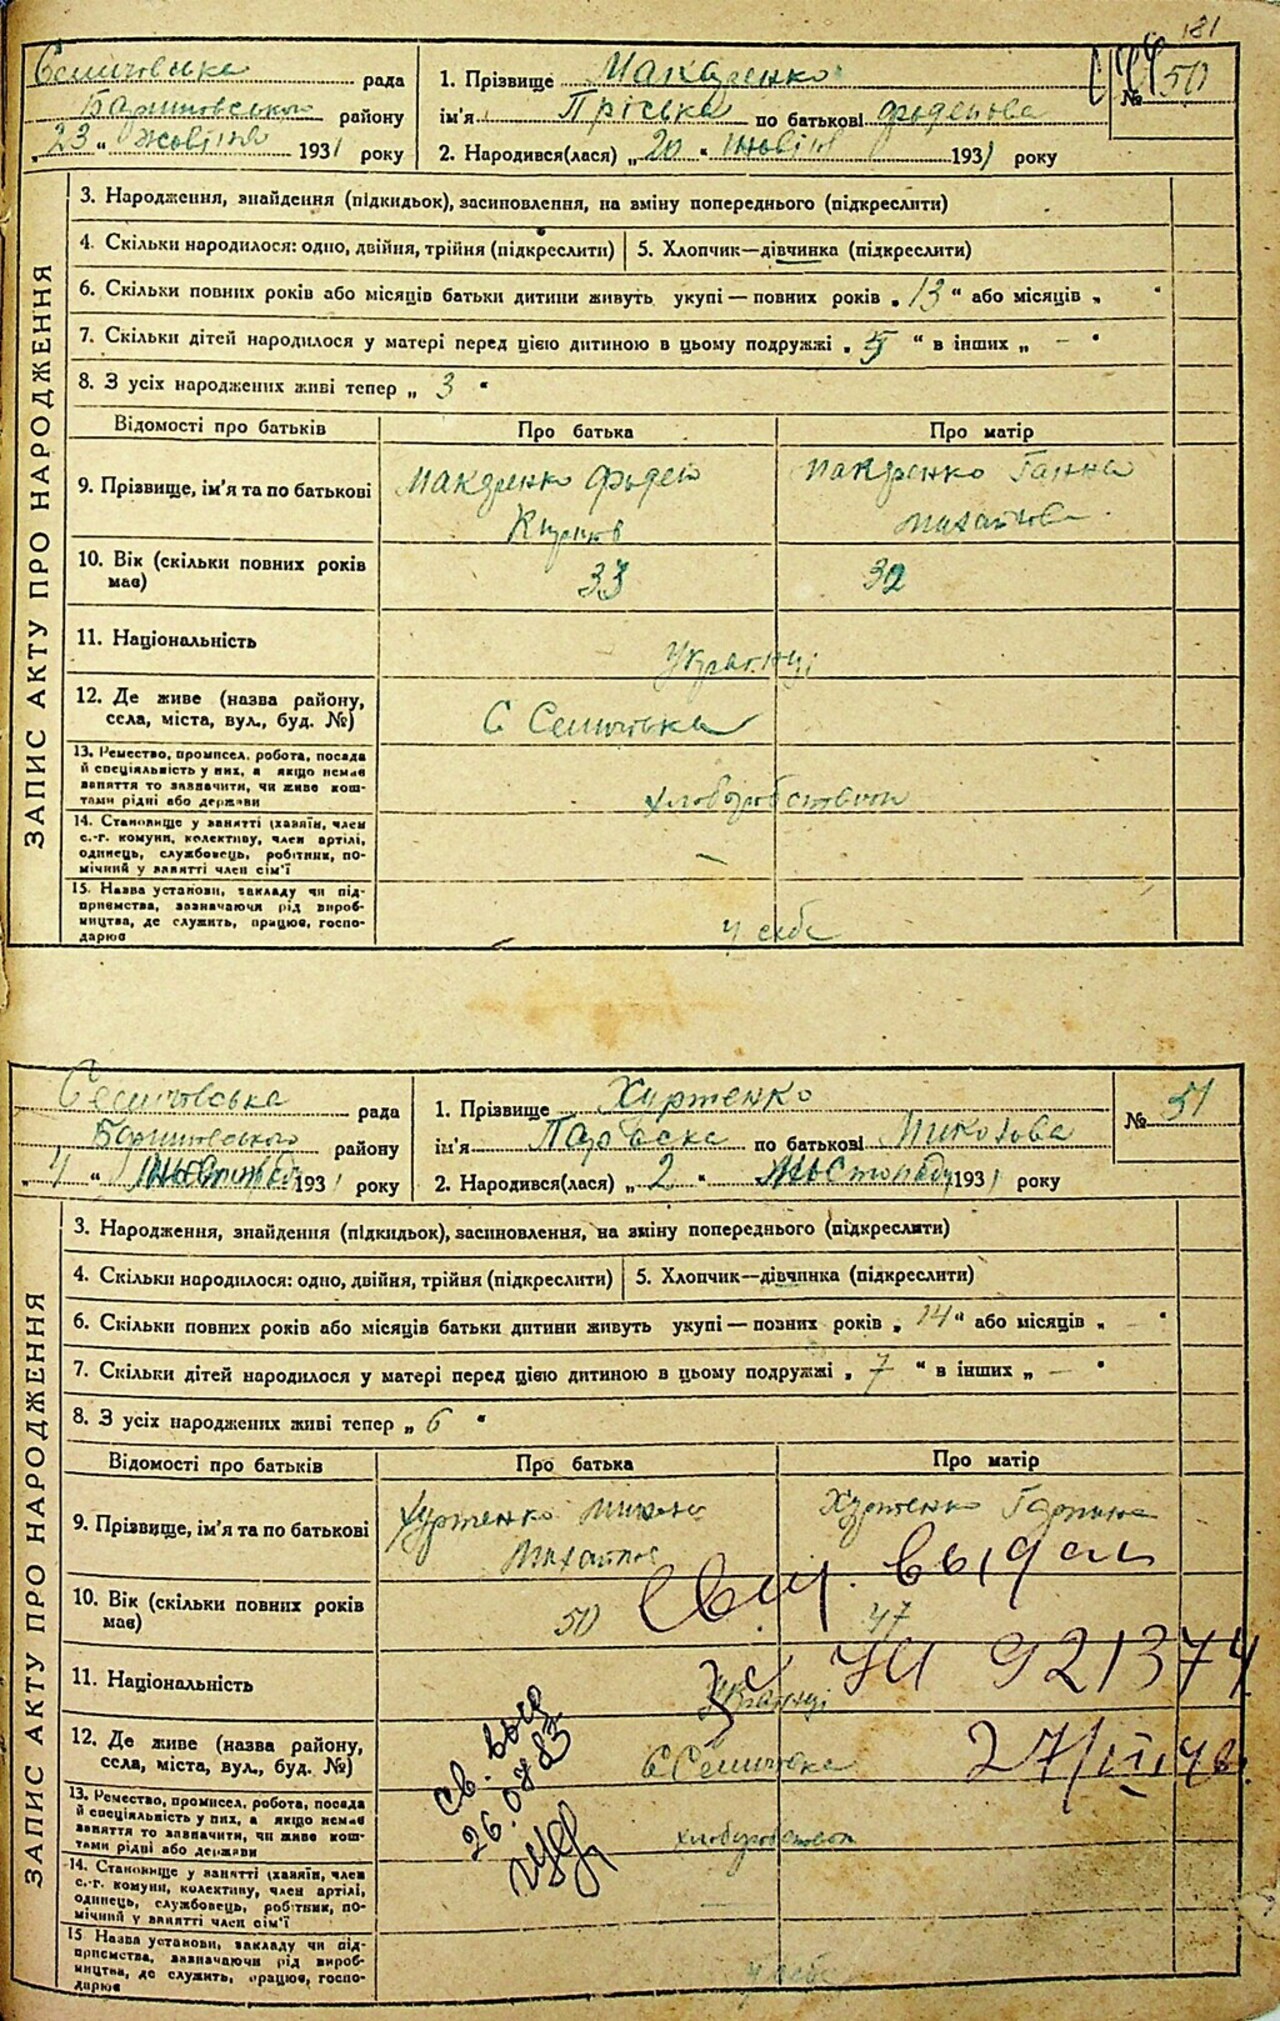 181
Селичовська рада
Баришовського району
„ 23 “ жовтня 1931 року
1. Прізвище Макаренко
ім'я Пріська по батькові Фодеьова
2. Народився(лася) „ 20 “ жовтня 1931 року
№ 50
ЗАПИС АКТУ ПРО НАРОДЖЕННЯ
3. Народження, знайдення (підкидьок), засиновлення, на зміну попереднього (підкреслити)
4. Скільки народилося: одно, двійня, трійня (підкреслити) 5. Хлопчик—дівчинка (підкреслити)
6. Скільки повних років або місяців батьки дитини живуть укупі — повних років „ 13 “ або місяців „ “
7. Скільки дітей народилося у матері перед цією дитиною в цьому подружжі „ 5 “ в інших „ — “
8. З усіх народжених живі тепер „ 3 “
Відомості про батьків Про батька Про матір
9. Прізвище, ім'я та по батькові
Макаренко
Макаренко Ганна
Михайлов
10. Вік (скільки повних років має) 33 32
11. Національність Українці
12. Де живе (назва району, села, міста, вул., буд. №) С Селичовка
13. Ремество, промисел, робота, посада й спеціальність у них, а якщо немає заняття то зазначити, чи живе коштами рідні або держави
хлоборобством
14. Становище у занятті (хазяїн, член с.-г. комуни, колективу, член артілі, одинець, службовець, робітник, помічний у занятті член сім'ї —
15. Назва установи, закладу чи підприємства, зазначаючи рід виробництва, де служить, працює, господарює
у себе
Селичовська рада
Баришовського району
„ 4 “ листопаду 1931 року
1. Прізвище Хуртенко
ім'я Параска по батькові Миколова
2. Народився(лася) „ 2 “ листопаду 1931 року
№ 51
ЗАПИС АКТУ ПРО НАРОДЖЕННЯ
3. Народження, знайдення (підкидьок), засиновлення, на зміну попереднього (підкреслити)
4. Скільки народилося: одно, двійня, трійня (підкреслити) 5. Хлопчик—дівчинка (підкреслити)
6. Скільки повних років або місяців батьки дитини живуть укупі — повних років „ 14 “ або місяців „ — “
7. Скільки дітей народилося у матері перед цією дитиною в цьому подружжі „ 7 “ в інших „ — “
8. З усіх народжених живі тепер „ 6 “
Відомості про батьків Про батька Про матір
9. Прізвище, ім'я та по батькові
Хуртенко Микола
Михайлов
Хуртенко Горпина
Свид. выдан
10. Вік (скільки повних років має) 50 47
УЯ 921374
11. Національність Українці
27/III 46
св. выд
26.07.83
12. Де живе (назва району, села, міста, вул., буд. №) С Селичовка
13. Ремество, промисел, робота, посада й спеціальність у них, а якщо немає заняття то зазначити, чи живе коштами рідні або держави
хлоборобством
14. Становище у занятті (хазяїн, член с.-г. комуни, колективу, член артілі, одинець, службовець, робітник, помічний у занятті член сім'ї
15 Назва установи, закладу чи підприємства, зазначаючи рід виробництва, де служить, працює, господарює
у себе